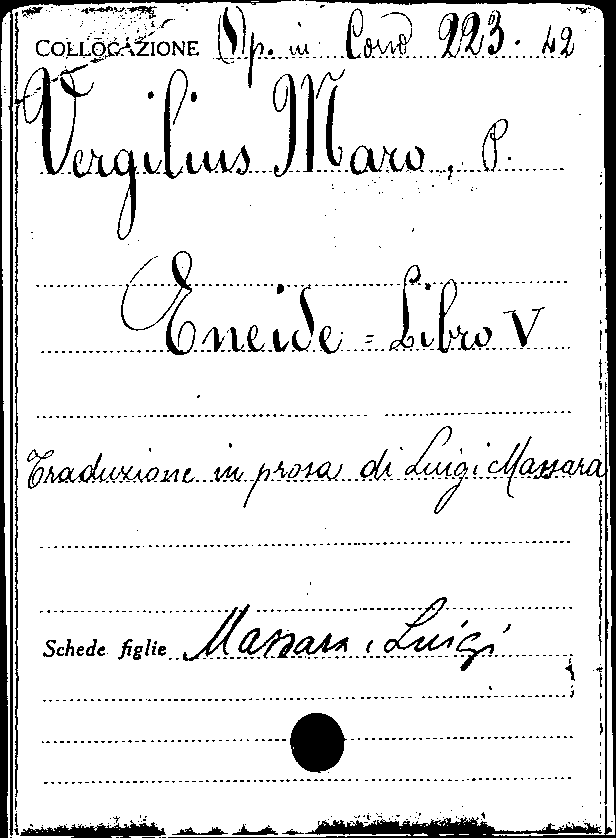 COLLOCAZIONE Op. in Cons 223. 42
Vergilius Maro, P.
Eneide = Libro V
Traduzione in prosa di Luigi Massara
Schede figlie Massara, Luigi